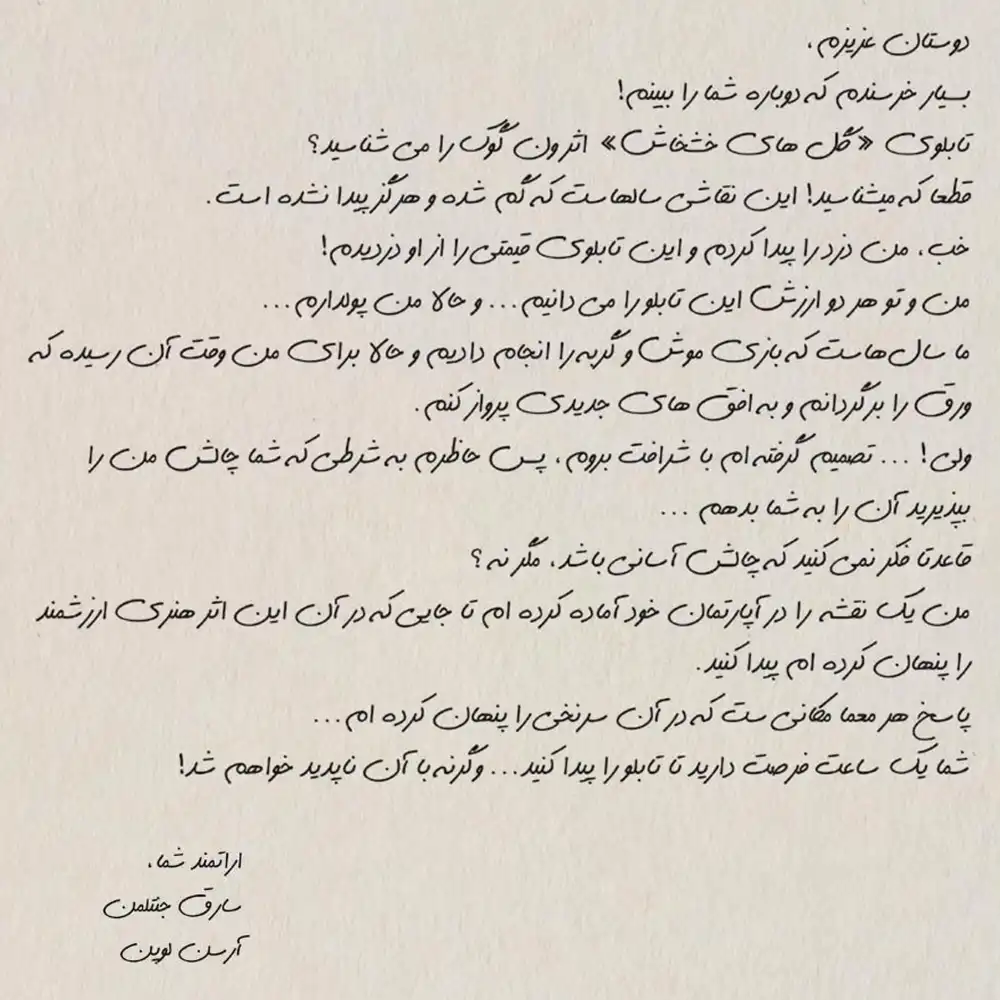 دوستان عزیزم،
بسیار خرسندم که دوباره شما را ببینم!
تابلوی «گل های خشخاش» اثر ون گوگ را می شناسید؟
قطعا که میشناسید! این نقاشی سالهاست که گم شده و هرگز پیدا نشده است.
خب، من دزد را پیدا کردم و این تابلوی قیمتی را از او دزدیدم!
من و تو هر دو ارزش این تابلو را می دانیم... و حالا من پولدارم...
ما سال هاست که بازی موش و گربه را انجام دادیم و حالا برای من وقت آن رسیده که
ورق را برگردانم و به افق های جدیدی پرواز کنم.
ولی! ... تصمیم گرفته ام با شرافت بروم، پس حاظرم به شرطی که شما چالش من را
بپذیرید آن را به شما بدهم ...
قاعدتا فکر نمی کنید که چالش آسانی باشد، مگر نه؟
من یک نقشه را در آپارتمان خود آماده کرده ام تا جایی که در آن این اثر هنری ارزشمند
را پنهان کرده ام پیدا کنید.
پاسخ هر معما مکانی ست که در آن سرنخی را پنهان کرده ام...
شما یک ساعت فرصت دارید تا تابلو را پیدا کنید... وگرنه با آن ناپدید خواهم شد!
اراتمند شما،
سارق جنتلمن
آرسن لوپن